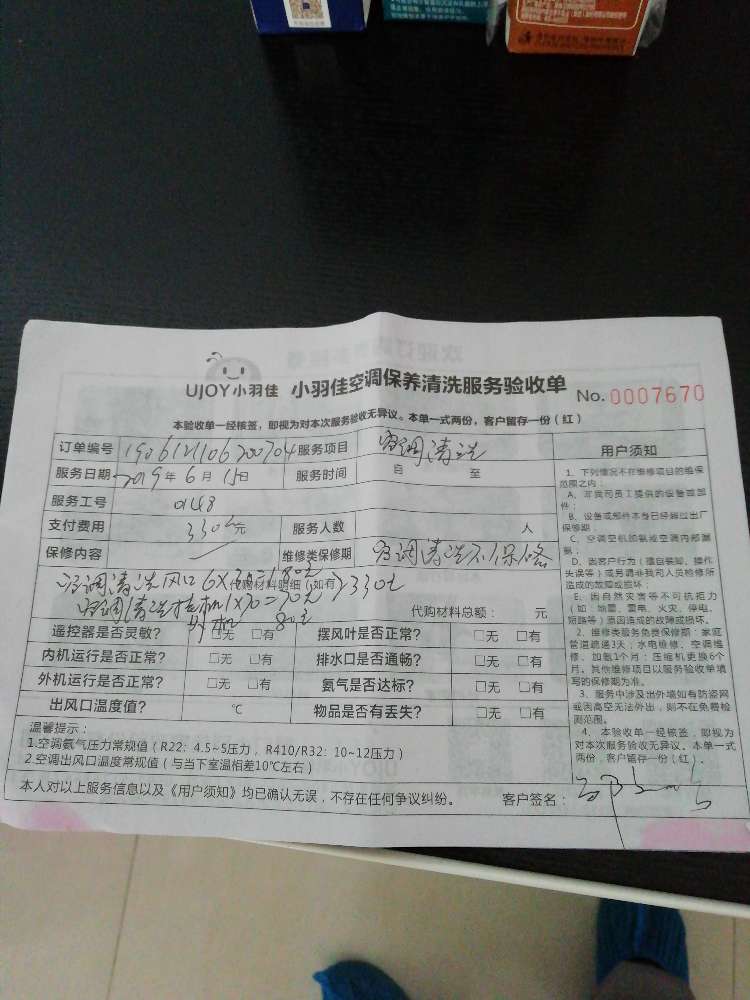 UJOY小羽佳 小羽佳空调保养清洗服务验收单 No. 0007670
本验收单一经核签，即视为对本次服务验收无异议。本单一式两份，客户留存一份（红）
订单编号 服务项目 空调清洗
服务日期 2019年6月15日 服务时间 自 至
服务工号 0148
支付费用 330元 服务人数 人
保修内容 维修类保修期 空调清洗不保修
空调清洗风口6×30=180元
代购材料明细（如有） 330元
空调清洗挂机1×70=70元
80元
代购材料总额： 元
遥控器是否灵敏？ □无 □有 摆风叶是否正常？ □无 □有
内机运行是否正常？ □无 □有 排水口是否通畅？ □无 □有
外机运行是否正常？ □无 □有 氨气是否达标？ □无 □有
出风口温度值？ ℃ 物品是否有丢失？ □无 □有
温馨提示：
1.空调氨气压力常规值（R22：4.5~5压力，R410/R32：10~12压力）
2.空调出风口温度常规值（与当下室温相差10℃左右）
本人对以上服务信息以及《用户须知》均已确认无误，不存在任何争议纠纷。 客户签名：
用户须知
1、下列情况不在维修项目的维保
范围之内：
A、非我司员工提供的设备或部
件；
B、设备或部件本身已经超过出厂
保修期；
C、空调空机即氨或空调内部漏
氨；
D、因客户行为（擅自装卸、操作
失误等）或另请非我司人员检修所
造成的故障或损坏；
E、因自然灾害等不可抗拒力
（如：地震、雷电、火灾、停电、
短路等）原因造成的故障或损坏。
2、维修类服务免费保修期：家庭
管道疏通3天；水电检修、空调维
修、加氨1个月；压缩机更换6个
月。其他维修项目以服务验收单填
写的保修期为准。
3、服务中涉及出外墙如有防盗网
或因高空无法外出，则不在免费检
测范围。
4、本验收单一经核签，即视为
对本次服务验收无异议。本单一式
两份，客户留存一份（红）。